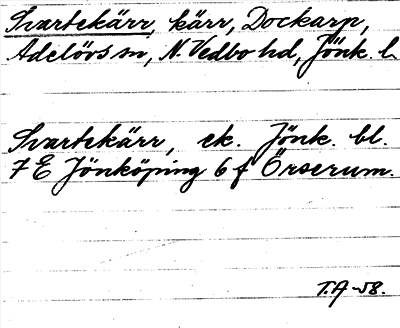 Svartekärr, kärr, Dockarp,
Adelövs sn, N. Vedbo hd, Jönk. l.
Svartekärr, ek. Jönk. bl.
7 E Jönköping 6 f Örserum.
T.A -58.